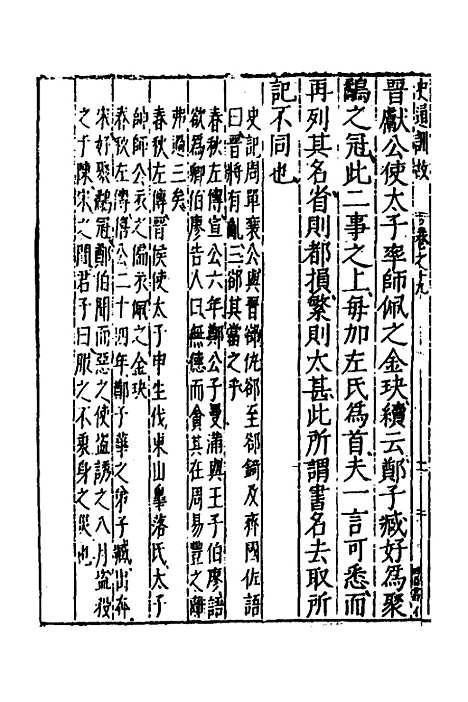 史通訓故 卷之十九
晉獻公使太子率師佩之金玦續云鄭子臧好爲聚
鷸之冠此二事之上每加左氏爲首夫一言可悉而
再列其名省則都損繁則太甚此所謂書名去取所
記不同也
史記周單襄公與晉郤仇郤至郤錡及齊國佐語
曰晉將有亂三郤其當之乎
春秋左傳宣公六年鄭公子曼滿與王子伯廖語
欲爲卿伯廖告人曰無德而貪其在周易豐之離
弗過三矣
春秋左傳晉侯使太子申生伐東山皋落氏太子
帥師公衣之偏衣佩之金玦
春秋左傳僖公二十四年鄭子華之弟子臧出奔
宋好聚鷸冠鄭伯聞而惡之使盜誘之八月盜殺
之于陳宋之間君子曰服之不衷身之災也